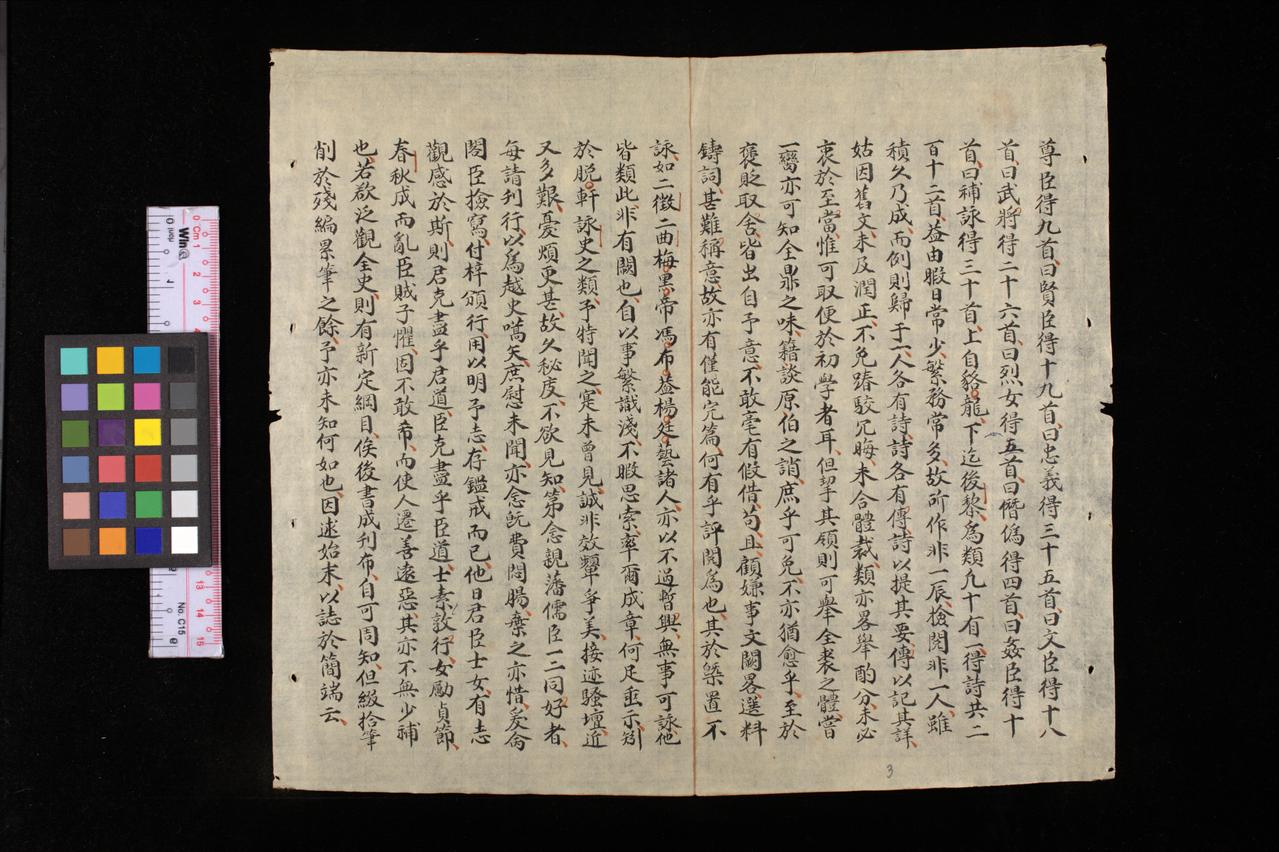 尊臣得九首、曰賢臣得十九首、曰忠義得三十五首、曰文臣得十八
首、曰武將得二十六首、曰烈女得五首、曰僭偽得四首、曰姦臣得十
首、曰補詠得三十首、上自貉龍、下迄後黎、為類凡十有一、得詩共二
百十二首、益由暇日常少、繁務常多、故所作非一辰、撿閱非一人、雖
積久乃成、而例則歸于一、人各有詩、詩各有傳、詩以提其要、傳以記其詳、
姑因舊文、未及潤正、不免踳駁冗晦、未合體裁、類亦畧舉、酌分未必
衷於至當、惟可取便於初學者耳、但挈其領則可舉全裘之體、嘗
一臠亦可知全鼎之味、籍談原伯之誚、庶乎可免、不亦猶愈乎、至於
褒貶取舍、皆出自予意、不敢毫有假借、苟且顧嫌、事文闕畧、選料
鑄詞、甚難稱意、故亦有僅能完篇、何有乎評閱為也、其於槩置不
詠、如二徵、二曲、梅黑帝、馮布益、楊廷藝諸人、亦以不過暫興、無事可詠、他
皆類此、非有闕也、自以事繁識淺、不暇思索、率爾成章、何足垂示、矧
於脫軒詠史之類、予特聞之、寔未曾見、誠非效顰爭美、接迹騷壇、近
又多艱、憂煩更甚、故久秘庋、不欲見知、第念親藩儒臣一二同好者、
每請刊行、以為越史嚆矢、庶慰未聞、亦念既費閒腸、棄之亦惜、爰命
閣臣撿寫付梓頒行、用以明予志、存鑑戒而已、他日君臣士女、有志
觀感於斯、則君克盡乎君道、臣克盡乎臣道、士素敦行、女勵貞節、
春秋成而亂臣賊子懼、固不敢希、而使人遷善遠惡、其亦不無少補
也、若欲泛觀全史、則有新定綱目、俟後書成刊布、自可周知、但綴拾筆
削於殘編累筆之餘、予亦未知何如也、因述始末、以誌於簡端云、
3